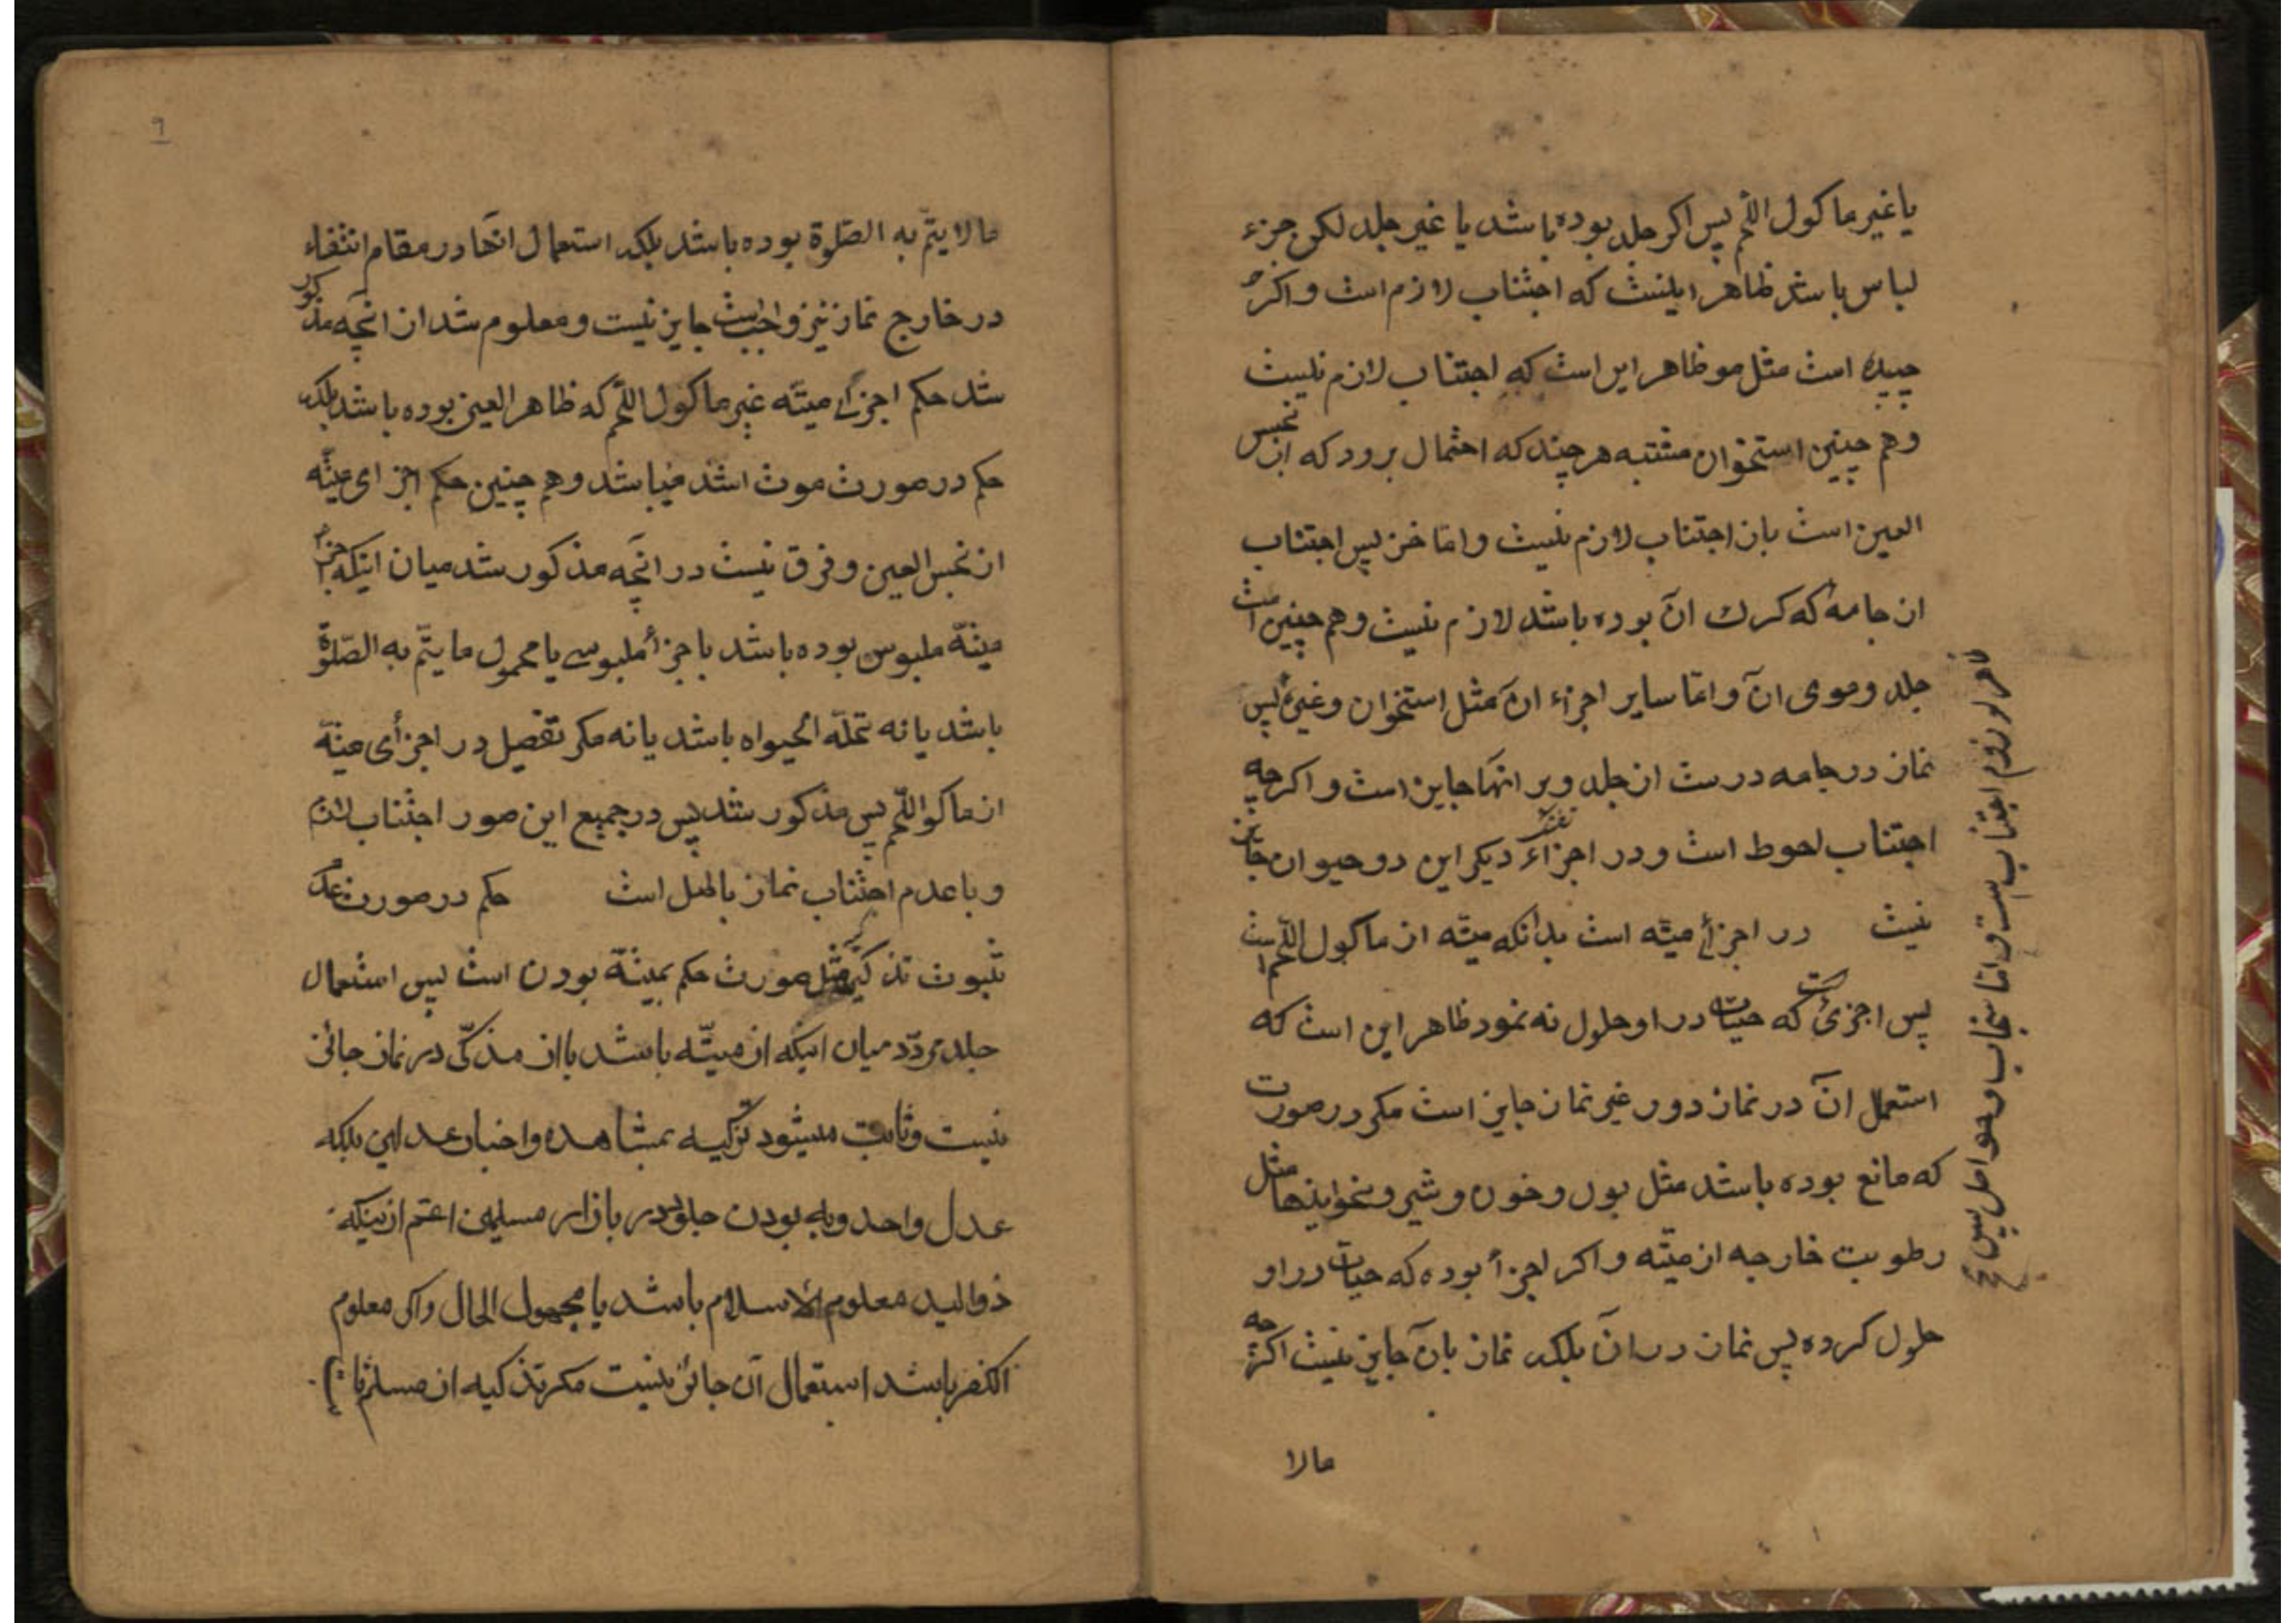 یا غیر ماکول اللحم پس اکر جلد بوده باشد یا غیر جلد لکن جزء
لباس باشد ظاهر اینست که اجتناب لازم است و اکر
چپیده است مثل مو ظاهر این است که اجتناب لازم نیست
وهم چنین استخوان مشتبه هر چند که احتمال برود که از نجس
العین است بان اجتناب لازم نیست و اما خز پس اجتناب
از جامه که کرک ان بوده باشد لازم نیست وهم چنین است
جلد و موی ان و اما سایر اجزاء ان مثل استخوان وغیره پس
نماز در جامه درست از جلد و بر انها جایز است و اکرچه
اجتناب احوط است و در اجزاء دیکر این دو حیوان جایز
نیست در اجزأ میته است بدانکه میته از ماکول اللحم است
پس اجزئی که حیات در او حلول نه نمود ظاهر این است که
استعمل ان در نماز و در غیر نماز جایز است مکر در صورت
که مانع بوده باشد مثل بول و خون و شیر و نخواینها مثل
رطوبت خارجه از میته و اکر اجزأ بوده که حیات در او
حلول کرده پس نماز در ان بلکه نماز بان جایز نیست اکرچه
مالا
لزوم اجتناب است و اما سنجاب و حواصل پس
مالا یتم به الصلوة بوده باشد بلکه استعمال انها در مقام انتفاء
در خارج نماز نیز جایز نیست و معلوم شد از انچه مذکور
شد حکم اجزأ میته غیر ماکول اللحم که طاهر العین بوده باشد بلکه
حکم در صورت موت اشد میباشد وهم چنین حکم اجزای میته
از نجس العین و فرق نیست در انچه مذکور شد میان اینکه اجزأ
میته ملبوس بوده باشد یا جزأ ملبوسی یا محمول ما یتم به الصلوة
باشد یا نه تحله الحیواه باشد یا نه مکر تفصیل در اجزأی میته
از ماکو اللحم پس مذکور شد پس در جمیع این صور اجتناب لازم
و با عدم اجتناب نماز باطل است حکم در صورت عدم
ثبوت تذکیه مثل صورت حکم بمیته بودن است پس استعمال
جلد مردد میان اینکه از میته باشد یا از مذکی در نماز جائز
نیست و ثابت میشود تزکیه بمشاهده و اخبار عدلین بلکه
عدل واحد و به بودن جلود در بازار مسلمین اعم از اینکه
ذوالید معلوم الاسلام باشد یا مجهول الحال و اکر معلوم
الکفر باشد استعمال آن جائز نیست مکر تذکیه از مسلم